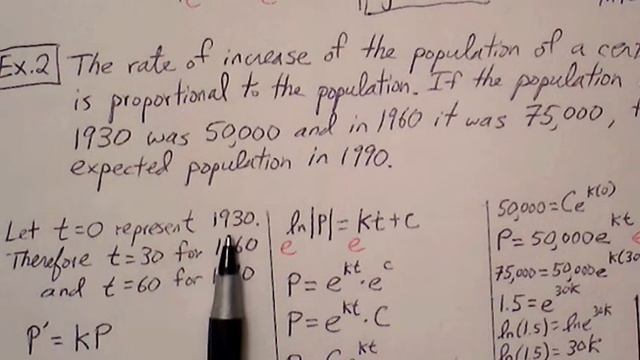 Ex.2 The rate of increase of the population of a
is proportional to the population. If the population
1930 was 50,000 and in 1960 it was 75,000,
expected population in 1990.
Let t=0 represent 1930.
Therefore t=30 for
and t=60 for
P'=kP
ln|P|=kt+c
e e
P=e^{kt}·e^{c}
P=e^{kt}·C
50,000=Ce^{k(0)}
P=50,000e^{kt}
75,000=50,000e^{k(30
1.5=e^{30k}
ln(1.5)=lne^{30k}
ln(1.5)=30k